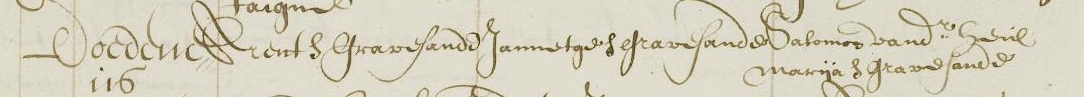 taigne
Doedene Arent s Gravesande Jannetge s Gravesande Salomon vand.r Heul
116 Marija s Gravesande